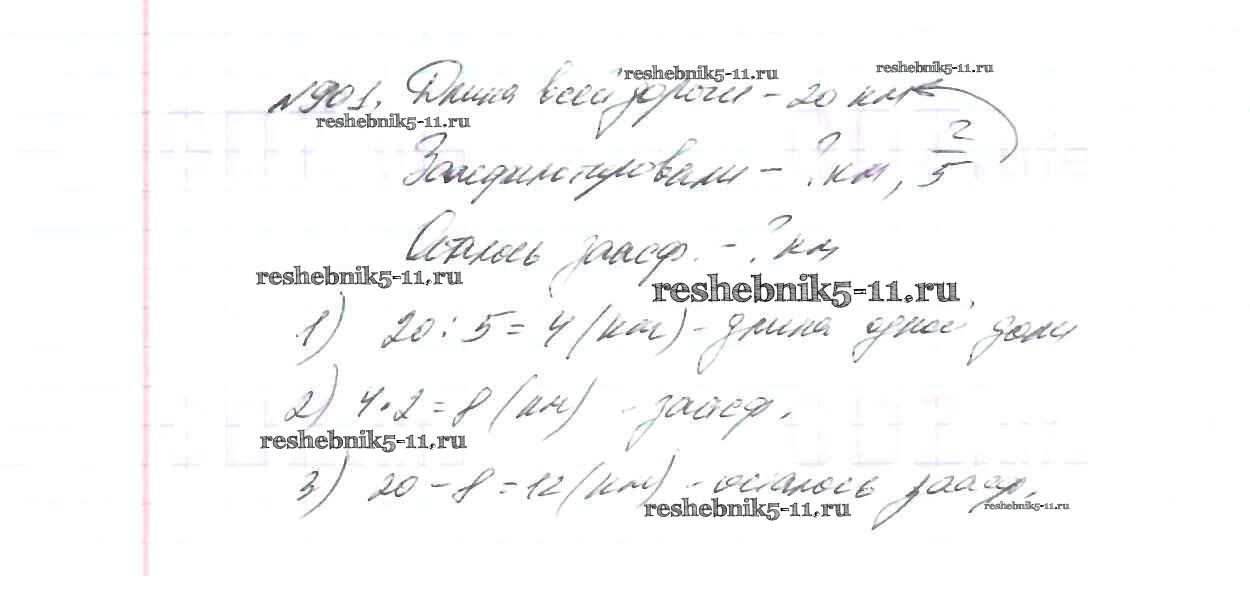 №901. Длина всей дороги – 20 км
reshebnik5-11.ru
reshebnik5-11.ru
reshebnik5-11.ru
Заасфальтировали – ? км, 2/5
Осталось заасф. – ? км
reshebnik5-11.ru
reshebnik5-11.ru
1) 20 : 5 = 4 (км) – длина одной доли
2) 4 • 2 = 8 (км) – заасф.
reshebnik5-11.ru
3) 20 – 8 = 12 (км) – осталось заасф.
reshebnik5-11.ru
reshebnik5-11.ru